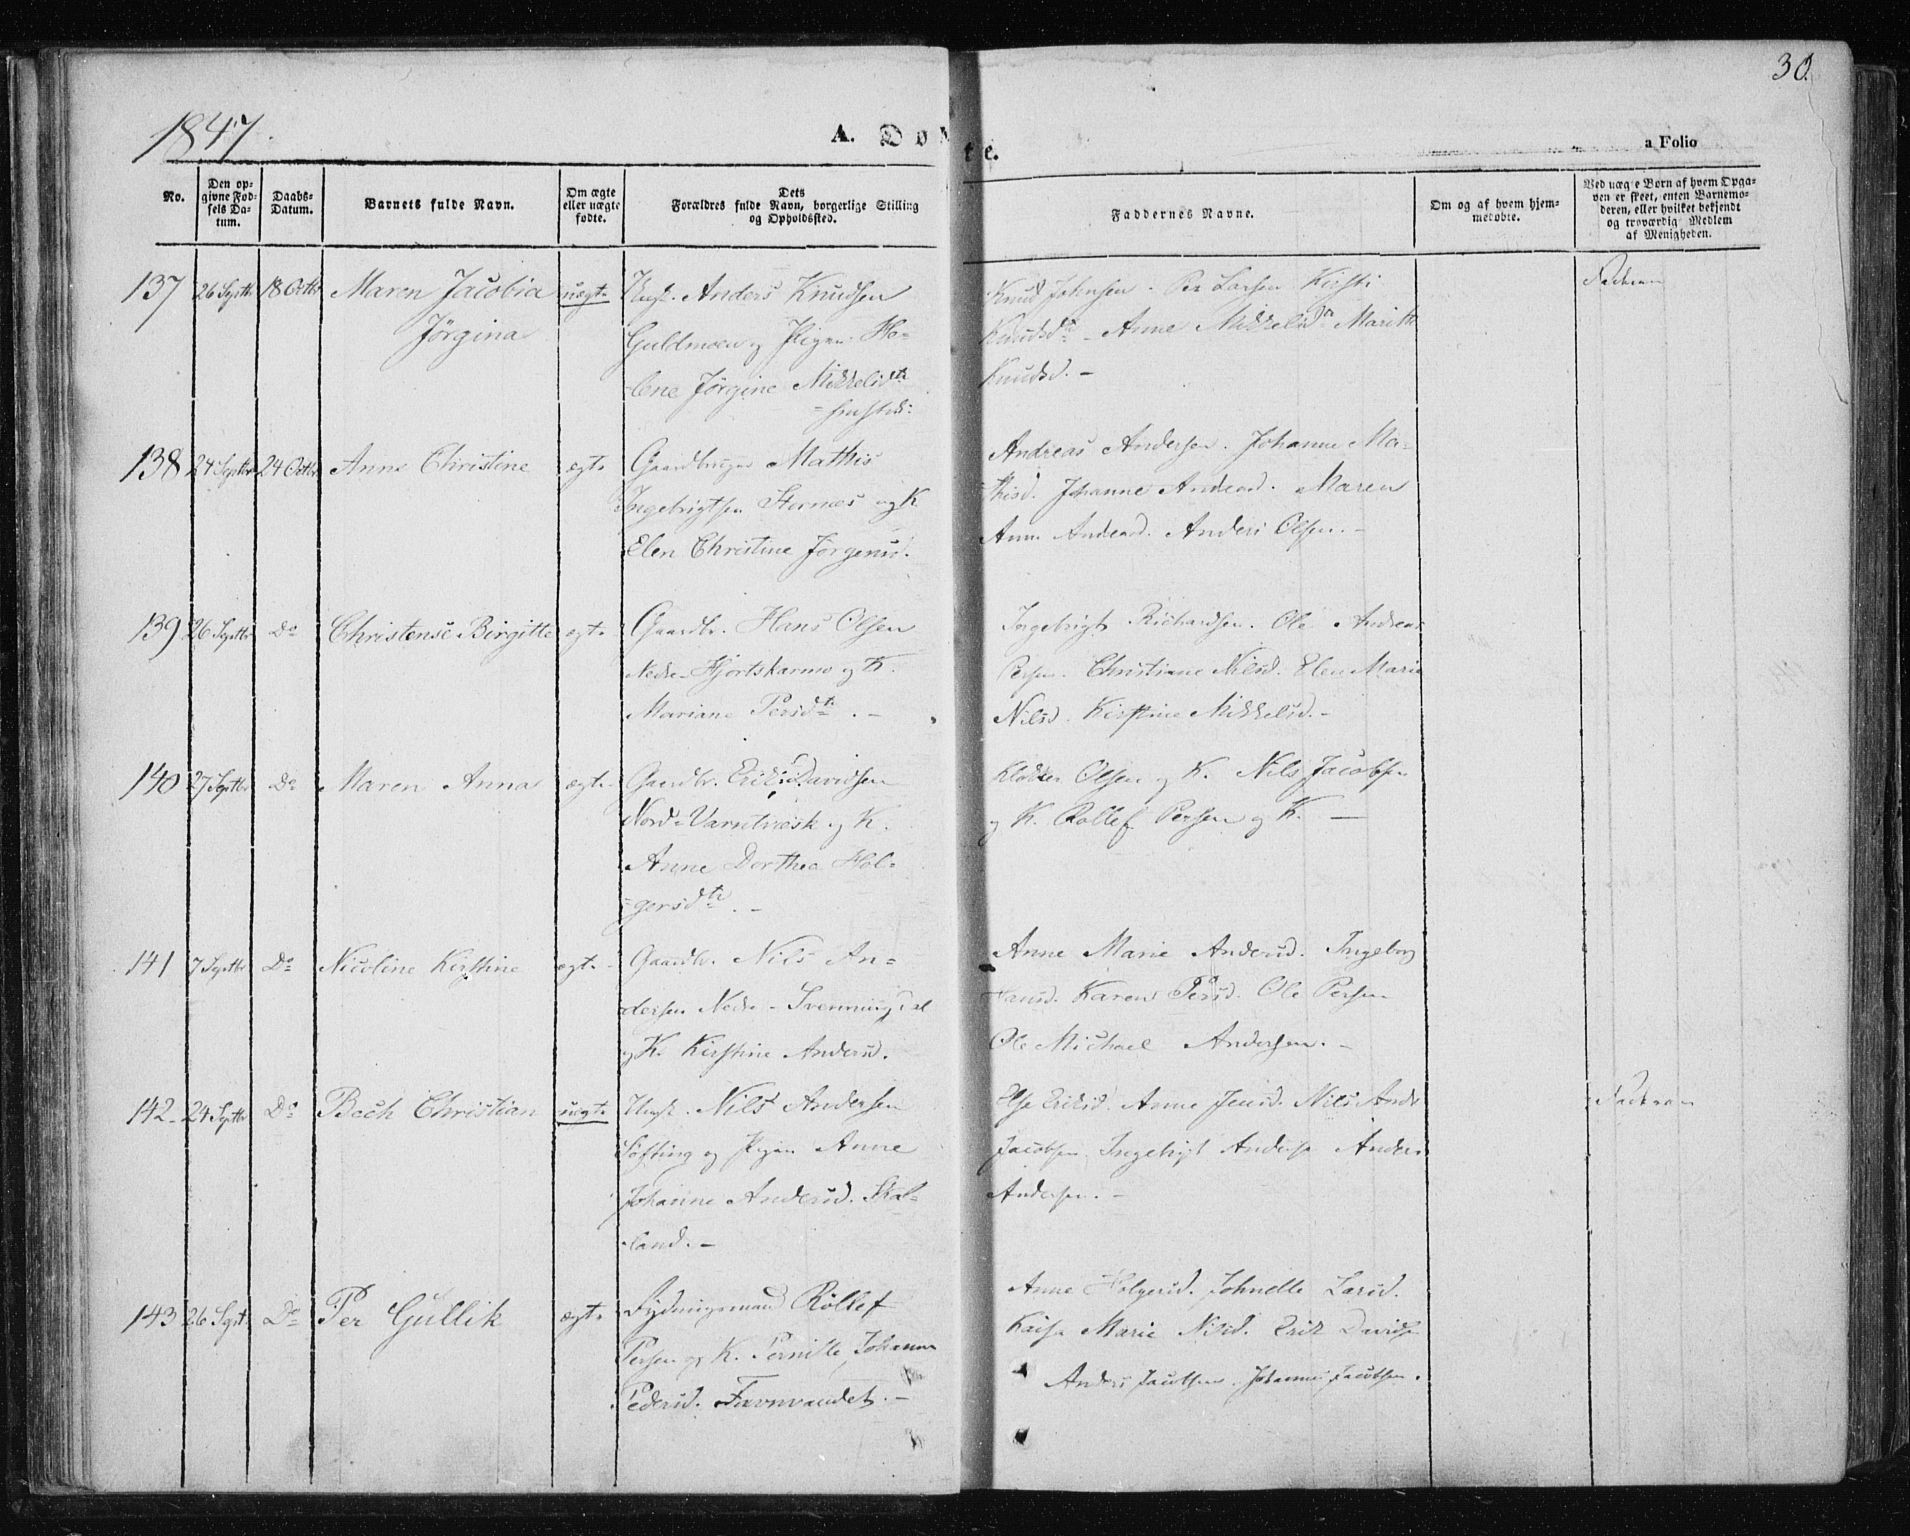 30.
1847.
A. Døbte.
a Folio
No.
Den op-
givne Fød-
sels Da-
tum.
Daabs-
Datum.
Barnets fulde Navn.
Om ægte
eller uægte
fødte.
Dets
Forældres fulde Navn, borgerlige Stilling
og Opholdssted.
Faddernes Navne.
Om og af hvem hjem-
medøbte.
Ved uægte Børn af hvem Opga-
ven er skeet, enten Barnemo-
deren, eller hvilket bekjendt
og troværdig Medlem
af Menigheden.
137 26 Septbr 18 Octbr Maren Jacobia uægte Anders Knudsen
Jörgina
Guldmoen og Pigen He-
lene Jörgine Mikkelsdtr
Knud Johnsen. Per Larsen Kirsti
Knudsdtr - Anne Mikkelsdtr Marith
Knudsd. -
Faderen
138 24 Septbr 24 Octbr Anne Christine ægte Gaardbruger Mathis
Ingebrigtsen Stornæs og K
Elen Christine Jörgensd.
Andreas Andersen. Johanne Ma-
thisd. Johanne Andersd. Maren
Anne Andersd. Anders Olsen. -
139 26 Septbr Do Christense Birgitte ægte Gaardbr. Hans Olsen
Nedre-Hjortskarmo og K.
Mariane Persdtr. -
Ingebrigt Richardsen. Ole Andreas
Persen. Christiane Nilsd. Elen Marie
Nilsd. Kirstine Mikkelsd. -
140 27 Septbr Do Maren Anna ægte Gaardbr. Erik Davidsen
Nord-Varntræsk og K.
Anne Dorthea Hol-
gersdtr. -
Olsen og K. Nils Jacobsen
og K. Rollef Persen og K. -
141 7 Septbr Do Nicoline Kirstine ægte Gaardbr. Nils An-
dersen Nedre-Svenningdal
og K. Kirstine Andersd.
Anne Marie Andersd. Ingeborg
Hansd. Karen Persd. Ole Persen
Ole Michael Andersen. -
142. 24 Septbr Do Bech Christian uægte Nils Andersen
og Pigen Anne
Johanne Andersd. Skal-
land. -
Else Eriksd. Anne Jensd. Nils Ande
Jacobsen Ingebrigt Anders
Andersen. -
Faderen
143 26 Sept. Do Per Gullik ægte Rydningsmand Rollef
Persen og K. Pernille Johanna
Pedersd. Favnvandet. -
Anne Holgersd. Johnelle Larsd.
Kaisa Marie Nilsd. Erik Davidsen
Anders Jacobsen. Johannes Jacobsen.